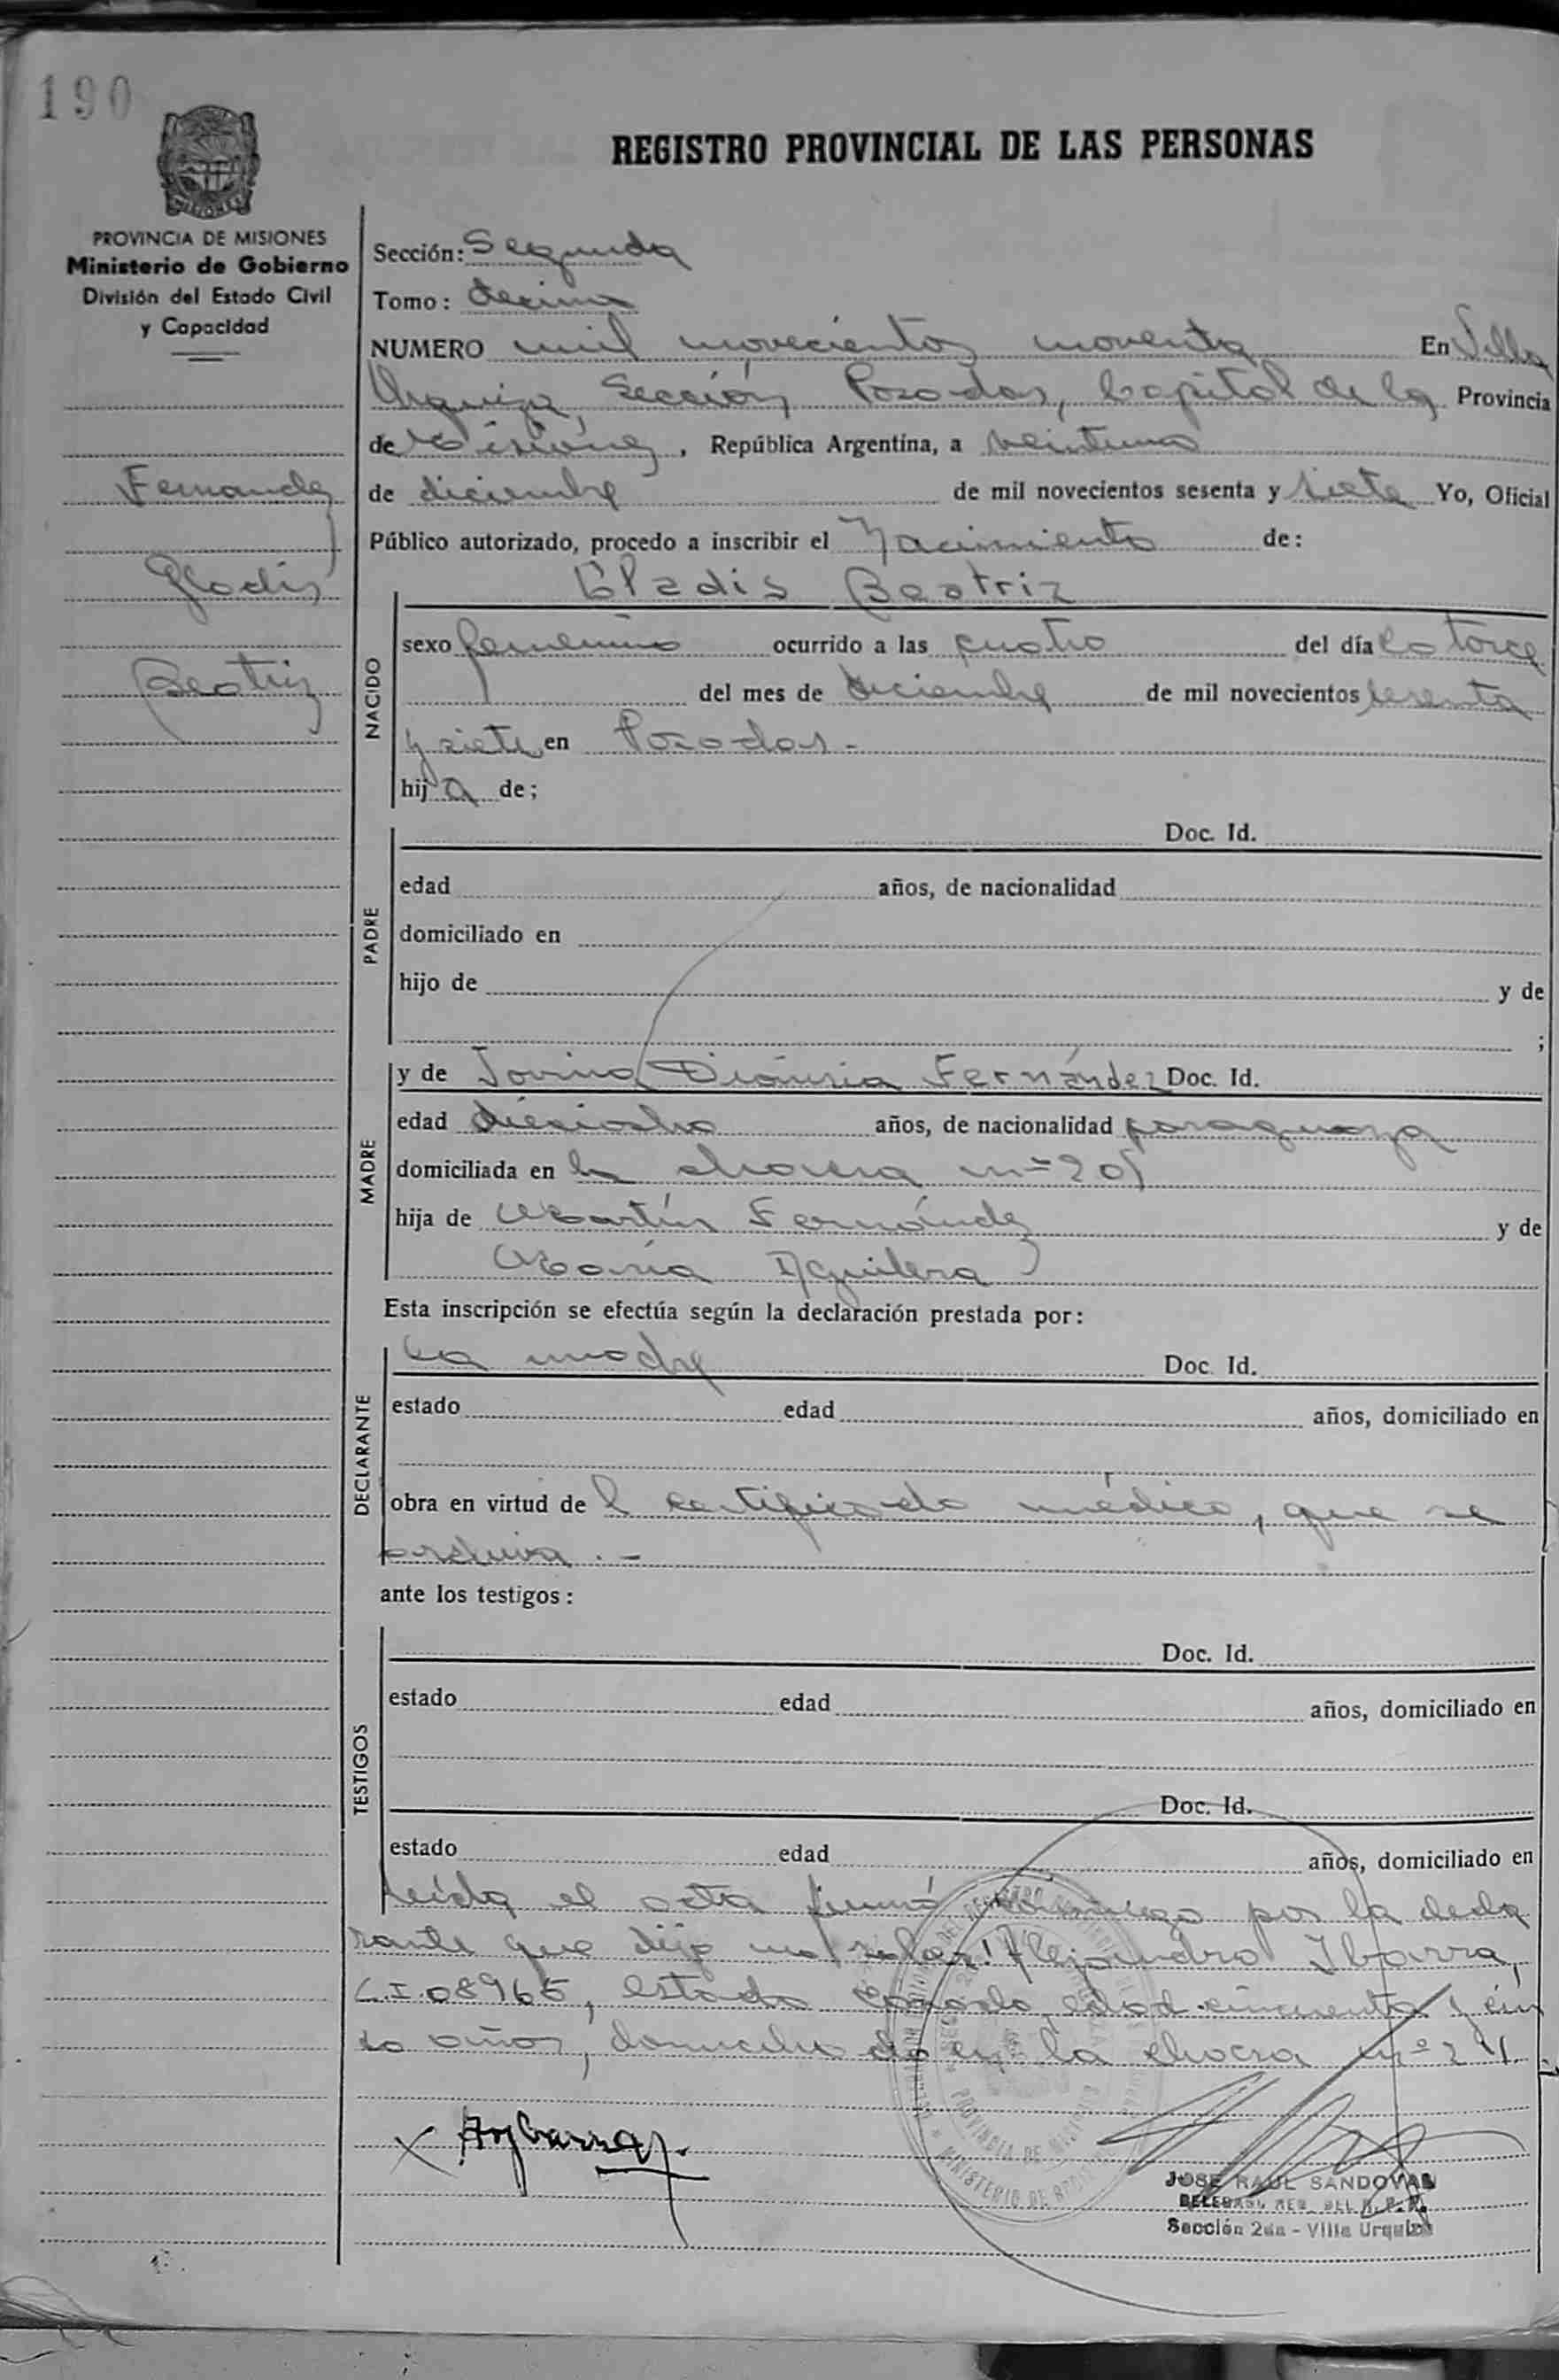 190
REGISTRO PROVINCIAL DE LAS PERSONAS
PROVINCIA DE MISIONES
Ministerio de Gobierno
División del Estado Civil
y Capacidad
Fernandez
Gladis
Beatriz
Sección: Segunda
Tomo: decimo
NUMERO mil novecientos noventa En Villa
Urquiza, Sección Posadas, Capital de la Provincia
de Misiones, República Argentina, a veintiuno
de diciembre de mil novecientos sesenta y siete Yo, Oficial
Público autorizado, procedo a inscribir el Nacimiento de:
Gladis Beatriz
NACIDO
sexo femenino ocurrido a las cuatro del día catorce
del mes de diciembre de mil novecientos sesenta
y siete en Posadas.-
hija de;
PADRE
Doc. Id.
edad años, de nacionalidad
domiciliado en
hijo de y de
;
MADRE
y de Jovina Dionisia Fernández Doc. Id.
edad dieciocho años, de nacionalidad paraguaya
domiciliada en la chacra nº 205
hija de Martín Fernández y de
María Aguilera
Esta inscripción se efectúa según la declaración prestada por:
DECLARANTE
La madre Doc. Id.
estado edad años, domiciliado en
obra en virtud del certificado médico, que se
archiva.-
ante los testigos:
TESTIGOS
Doc. Id.
estado edad años, domiciliado en
Doc. Id.
estado edad años, domiciliado en
Leída el acta firmó conmigo por la decla
rante que dijo no saber: Alejandro Ibarra,
C.I. 08965, estado casado, edad cincuenta y cin
co años, domiciliado en la chacra nº
JOSE RAUL SANDOVAL
Sección 2da - Villa Urquiza
PROVINCIA DE MISIONES